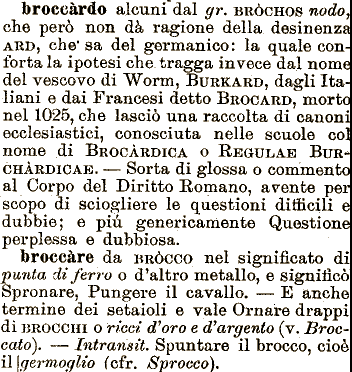 broccàrdo alcuni dal gr. BRÒCHOS nodo,
che però non dà ragione della desinenza
ARD, che sa del germanico: la quale con-
forta la ipotesi che tragga invece dal nome
del vescovo di Worm, BURKARD, dagli Ita-
liani e dai Francesi detto BROCARD, morto
nel 1025, che lasciò una raccolta di canoni
ecclesiastici, conosciuta nelle scuole col
nome di BROCÀRDICA o REGULAE BUR-
CHÀRDICAE. — Sorta di glossa o commento
al Corpo del Diritto Romano, avente per
scopo di sciogliere le questioni difficili e
dubbie; e più genericamente Questione
perplessa e dubbiosa.
broccàre da BRÒCCO nel significato di
punta di ferro o d'altro metallo, e significò
Spronare, Pungere il cavallo. — E anche
termine dei setaioli e vale Ornare drappi
di BROCCHI o ricci d'oro e d'argento (v. Broc-
cato). — Intransit. Spuntare il brocco, cioè
il germoglio (cfr. Sprocco).